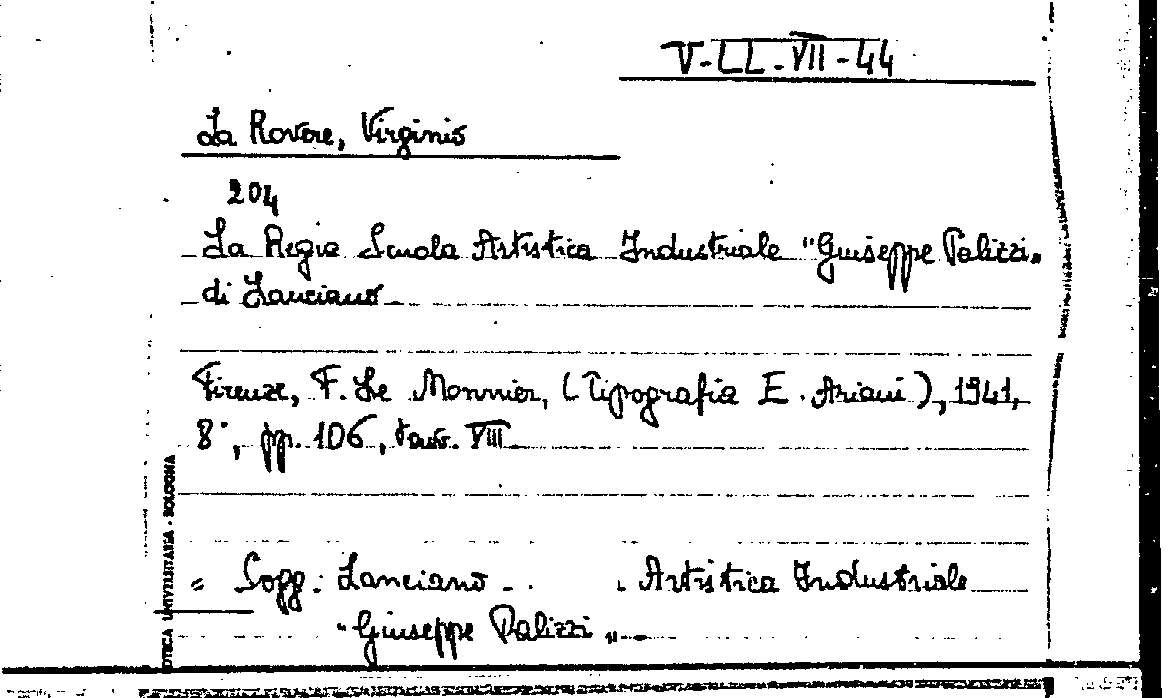 V-LL-VII-44
La Rovere, Virginio
204
La Regia Scuola Artistica Industriale "Giuseppe Palizzi"
di Lanciano
Firenze, F. Le Monnier, (Tipografia E. Ariani), 1941,
8°, pp. 106, tav. VIII
= Sogg: Lanciano - Artistica Industriale
"Giuseppe Palizzi"
OTECA UNIVERSITARIA - BOLOGNA